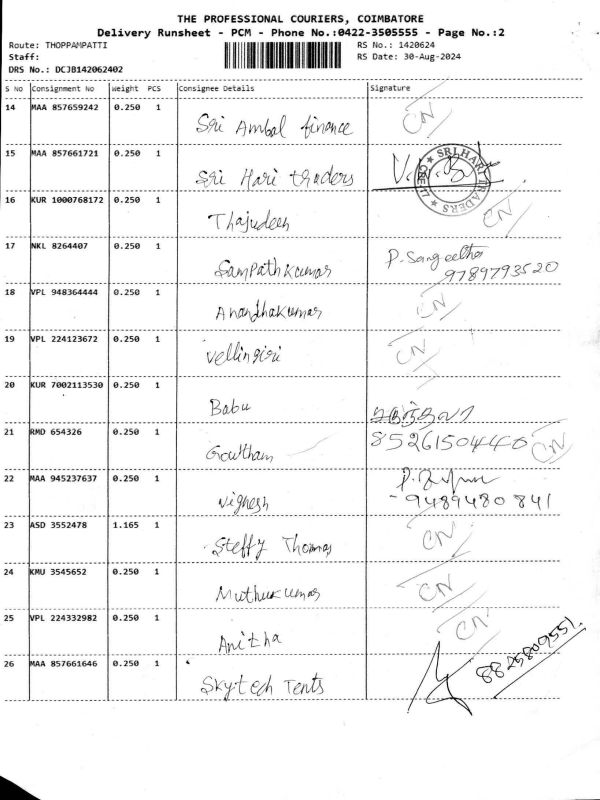 THE PROFESSIONAL COURIERS, COIMBATORE
Delivery Runsheet - PCM - Phone No.:0422-3505555 - Page No.:2
Route: THOPPAMPATTI RS No.: 1420624
Staff: RS Date: 30-Aug-2024
DRS No.: DCJB142062402
S NO Consignment No Weight PCS Consignee Details Signature
14 MAA 857659242 0.250 1 Sri Ambal finance CN
15 MAA 857661721 0.250 1 Sri Hari traders SRI HARI TRADERS
16 KUR 1000768172 0.250 1 Thajudeen CN
17 NKL 8264407 0.250 1 Sampathkumar P. Sangeetha
9789793520
18 VPL 948364444 0.250 1 Anandhakumar CN
19 VPL 224123672 0.250 1 Vellingiri CN
20 KUR 7002113530 0.250 1 Babu
8526150440
21 RMD 654326 0.250 1 Gowtham CN
22 MAA 945237637 0.250 1 Vighesh
9489480841
23 ASD 3552478 1.165 1 Steffy Thomas CN
24 KMU 3545652 0.250 1 Muthukumar CN
25 VPL 224332982 0.250 1 Anitha CN
26 MAA 857661646 0.250 1 Skytech Tents 8825809551